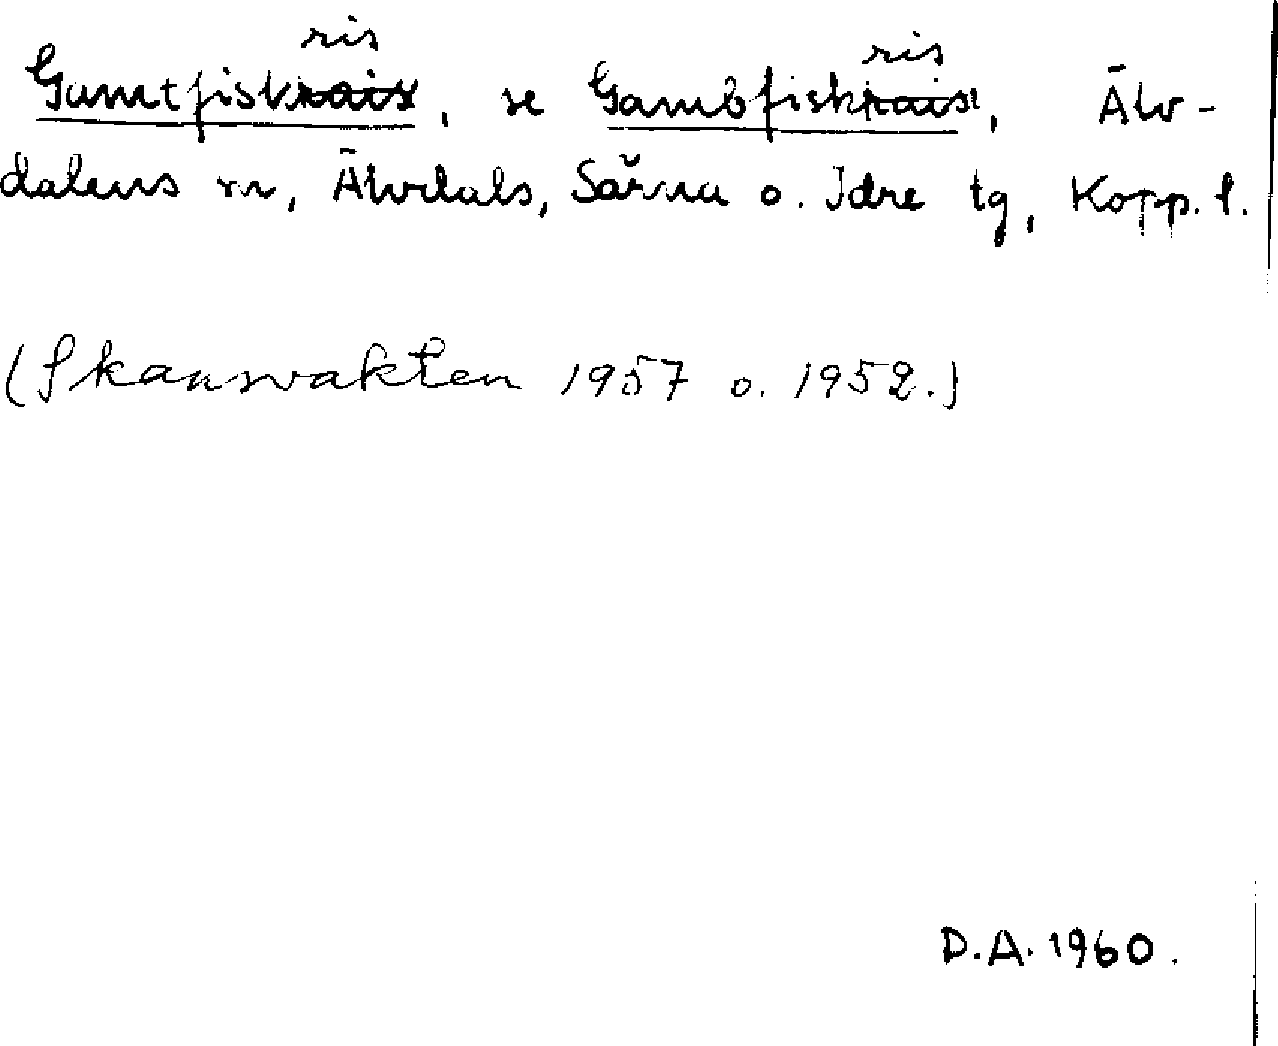 Gamtfiskris, se Gambfiskris, Älv-
dalens sn, Älvdals, Särna o. Idre tg, Kopp. l.
(Skansvakten 1957 o. 1952.)
D.A. 1960.